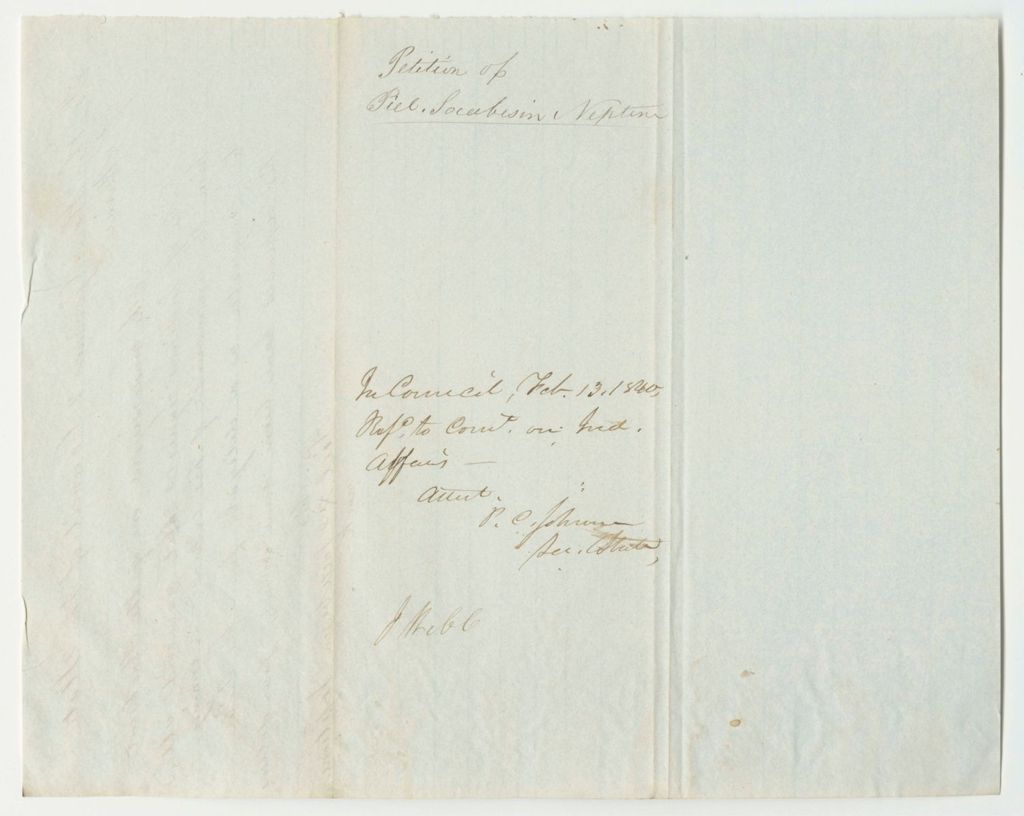 Petition of
Piel. Socabesin Neptune
In Council, Feb. 13. 1840,
Refd. to Comt. on Ind.
Affairs —
Attest.
P. C. Johnson
Sec. State,